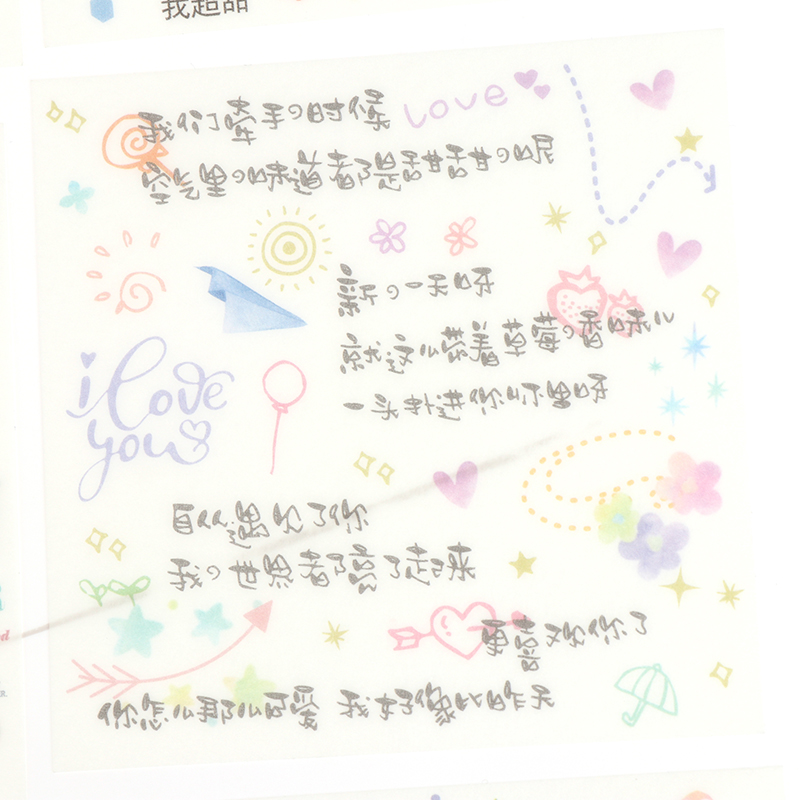 我超甜
我们牵手の时候
love
空气里の味道都是甜甜の呢
新の一天呀
就这么带着草莓の香味儿
一头扎进你怀里呀
i love
you
自从遇见了你
我の世界都亮了起来
更喜欢你了
你怎么那么可爱 我好像比昨天